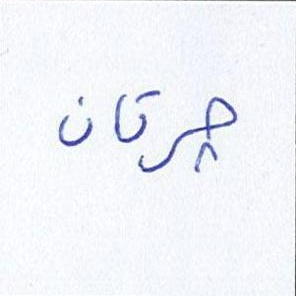 چرتان